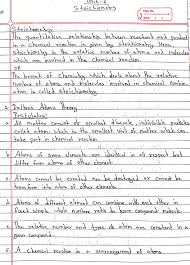 Unit-2
Stoichiometry
Date
Page
Stoichiometry
The quantitative relationship between reactant and product
in a chemical reaction is given by stoichiometry. Hence,
stoichiometry is the relative number of atoms and molecules
which are involved in the chemical reaction.
OR
The branch of chemistry which deals about the relative
number of atoms and molecules involved in chemical combin-
ation is called stoichiometry.
Dalton's Atomic Theory
Postulates:
All matter consist of smallest discrete, indivisible particles
called atom which is the smallest unit of matter which can
take part in chemical reaction.
Atoms of same elements are identical in all respect but
differ from atoms of other element.
Atoms cannot be created nor be destroyed or cannot be
transform into atom of other element.
Atoms of different element can combine with each other in
fixed simple whole number ratio to form compound molecule.
The relative number and types of atom are constant in a
given compound.
A chemical reaction is a rearrangement of atoms.